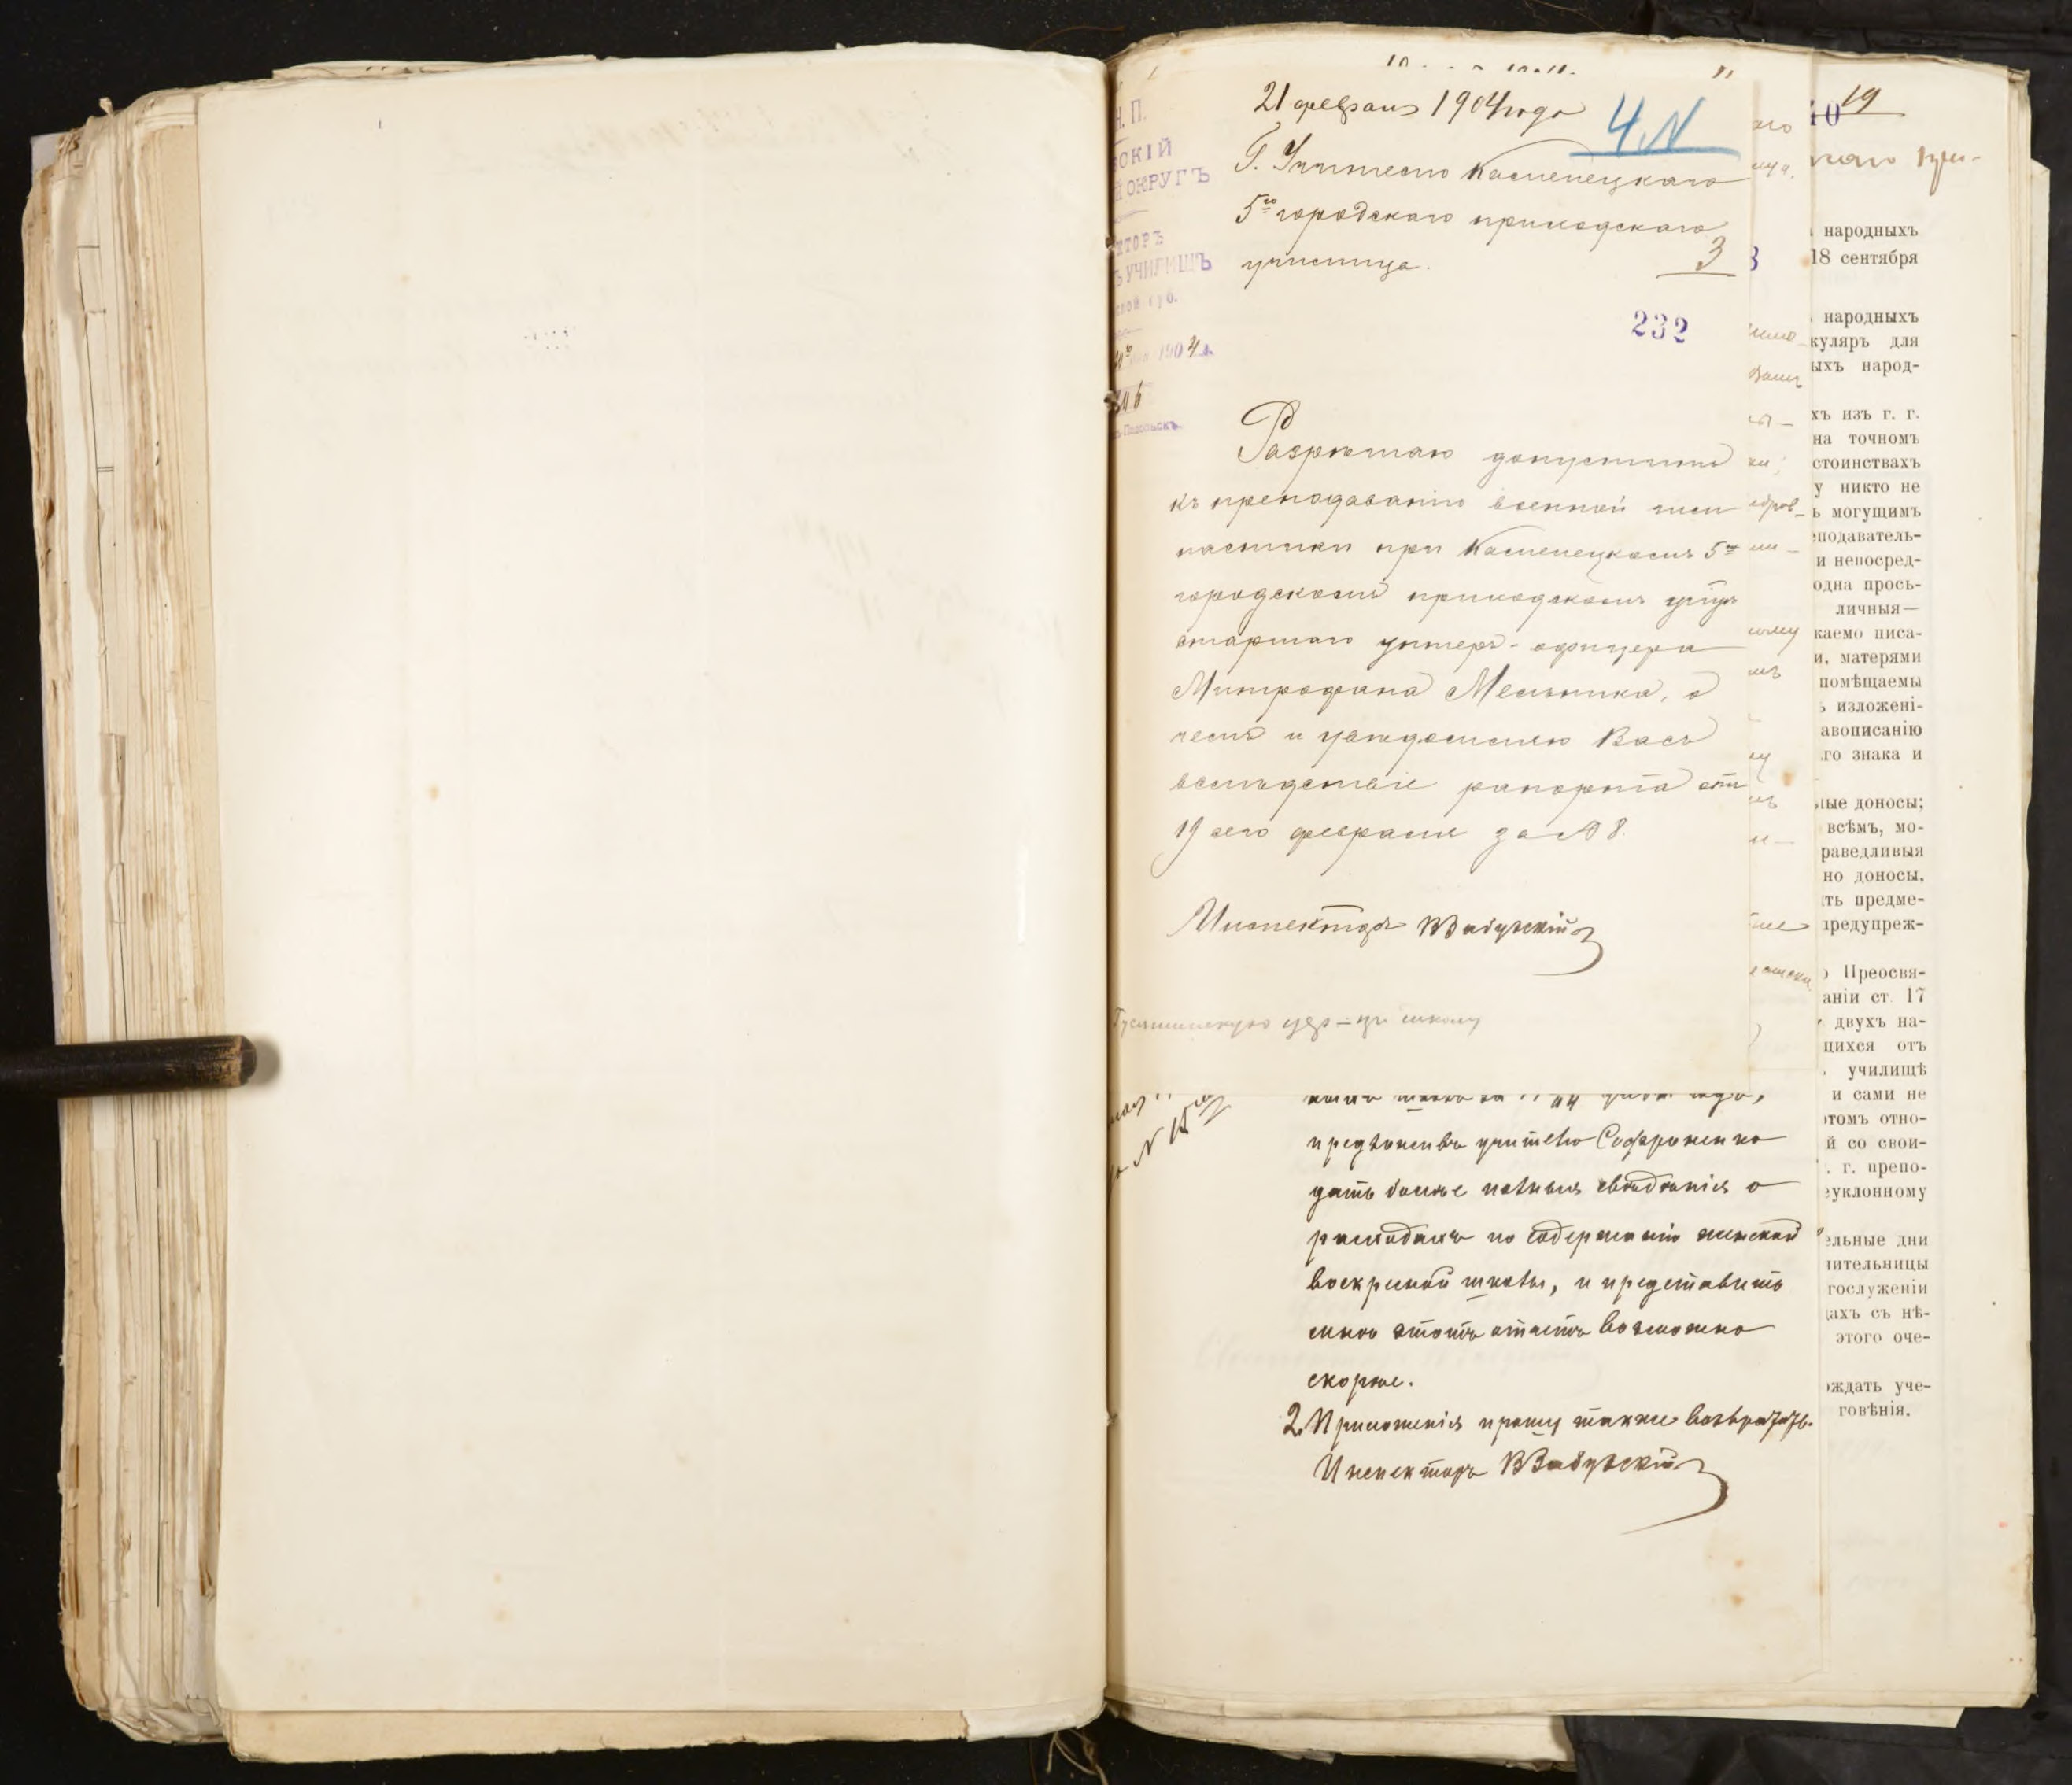 21 февраля 1904 года
4 N
Г. Учителю Каменецкаго
5го городского приходскаго
училища.
3
232
Н. П.
СКІЙ
ОКРУГЪ
КТОРЪ
УЧИЛИЩЪ
ской губ.
1904 г.
Подольскъ
Разрѣшаю допустить
къ преподаванію военной гим
настики при Каменецкомъ 5мъ
городскомъ приходскомъ учи
старшаго унтеръ-офицера
Митрофана Мельника, о
чемъ и увѣдомляю Васъ
вслѣдствіе рапорта отъ
19 сего февраля за № 8.
Инспекторъ
школу
N 15
предложивъ учителю Софроненко
дать болѣе полныя свѣдѣнія о
расходахъ по содержанію женской
воскресной школы, и представить
мнѣ этотъ отчетъ возможно
скорѣе.
2. Приложенія прошу также возвратить.
Инспекторъ
19
40
народныхъ
18 сентября
народныхъ
куляръ для
ыхъ народ-
хъ изъ г. г.
на точномъ
стоинствахъ
у никто не
ъ могущимъ
еподаватель-
и непосред-
одна прось-
личныя—
каемо писа-
и, матерями
помѣщаемы
ъ изложені-
авописанію
го знака и
ные доносы;
всѣмъ, мо-
раведливыя
но доносы,
ть предме-
предупреж-
о Преосвя-
аніи ст. 17
двухъ на-
щихся отъ
училищѣ
и сами не
этомъ отно-
й со свои-
. г. препо-
еуклонному
ельные дни
чительницы
гослуженіи
дахъ съ нѣ-
этого оче-
ождать уче-
говѣнія.